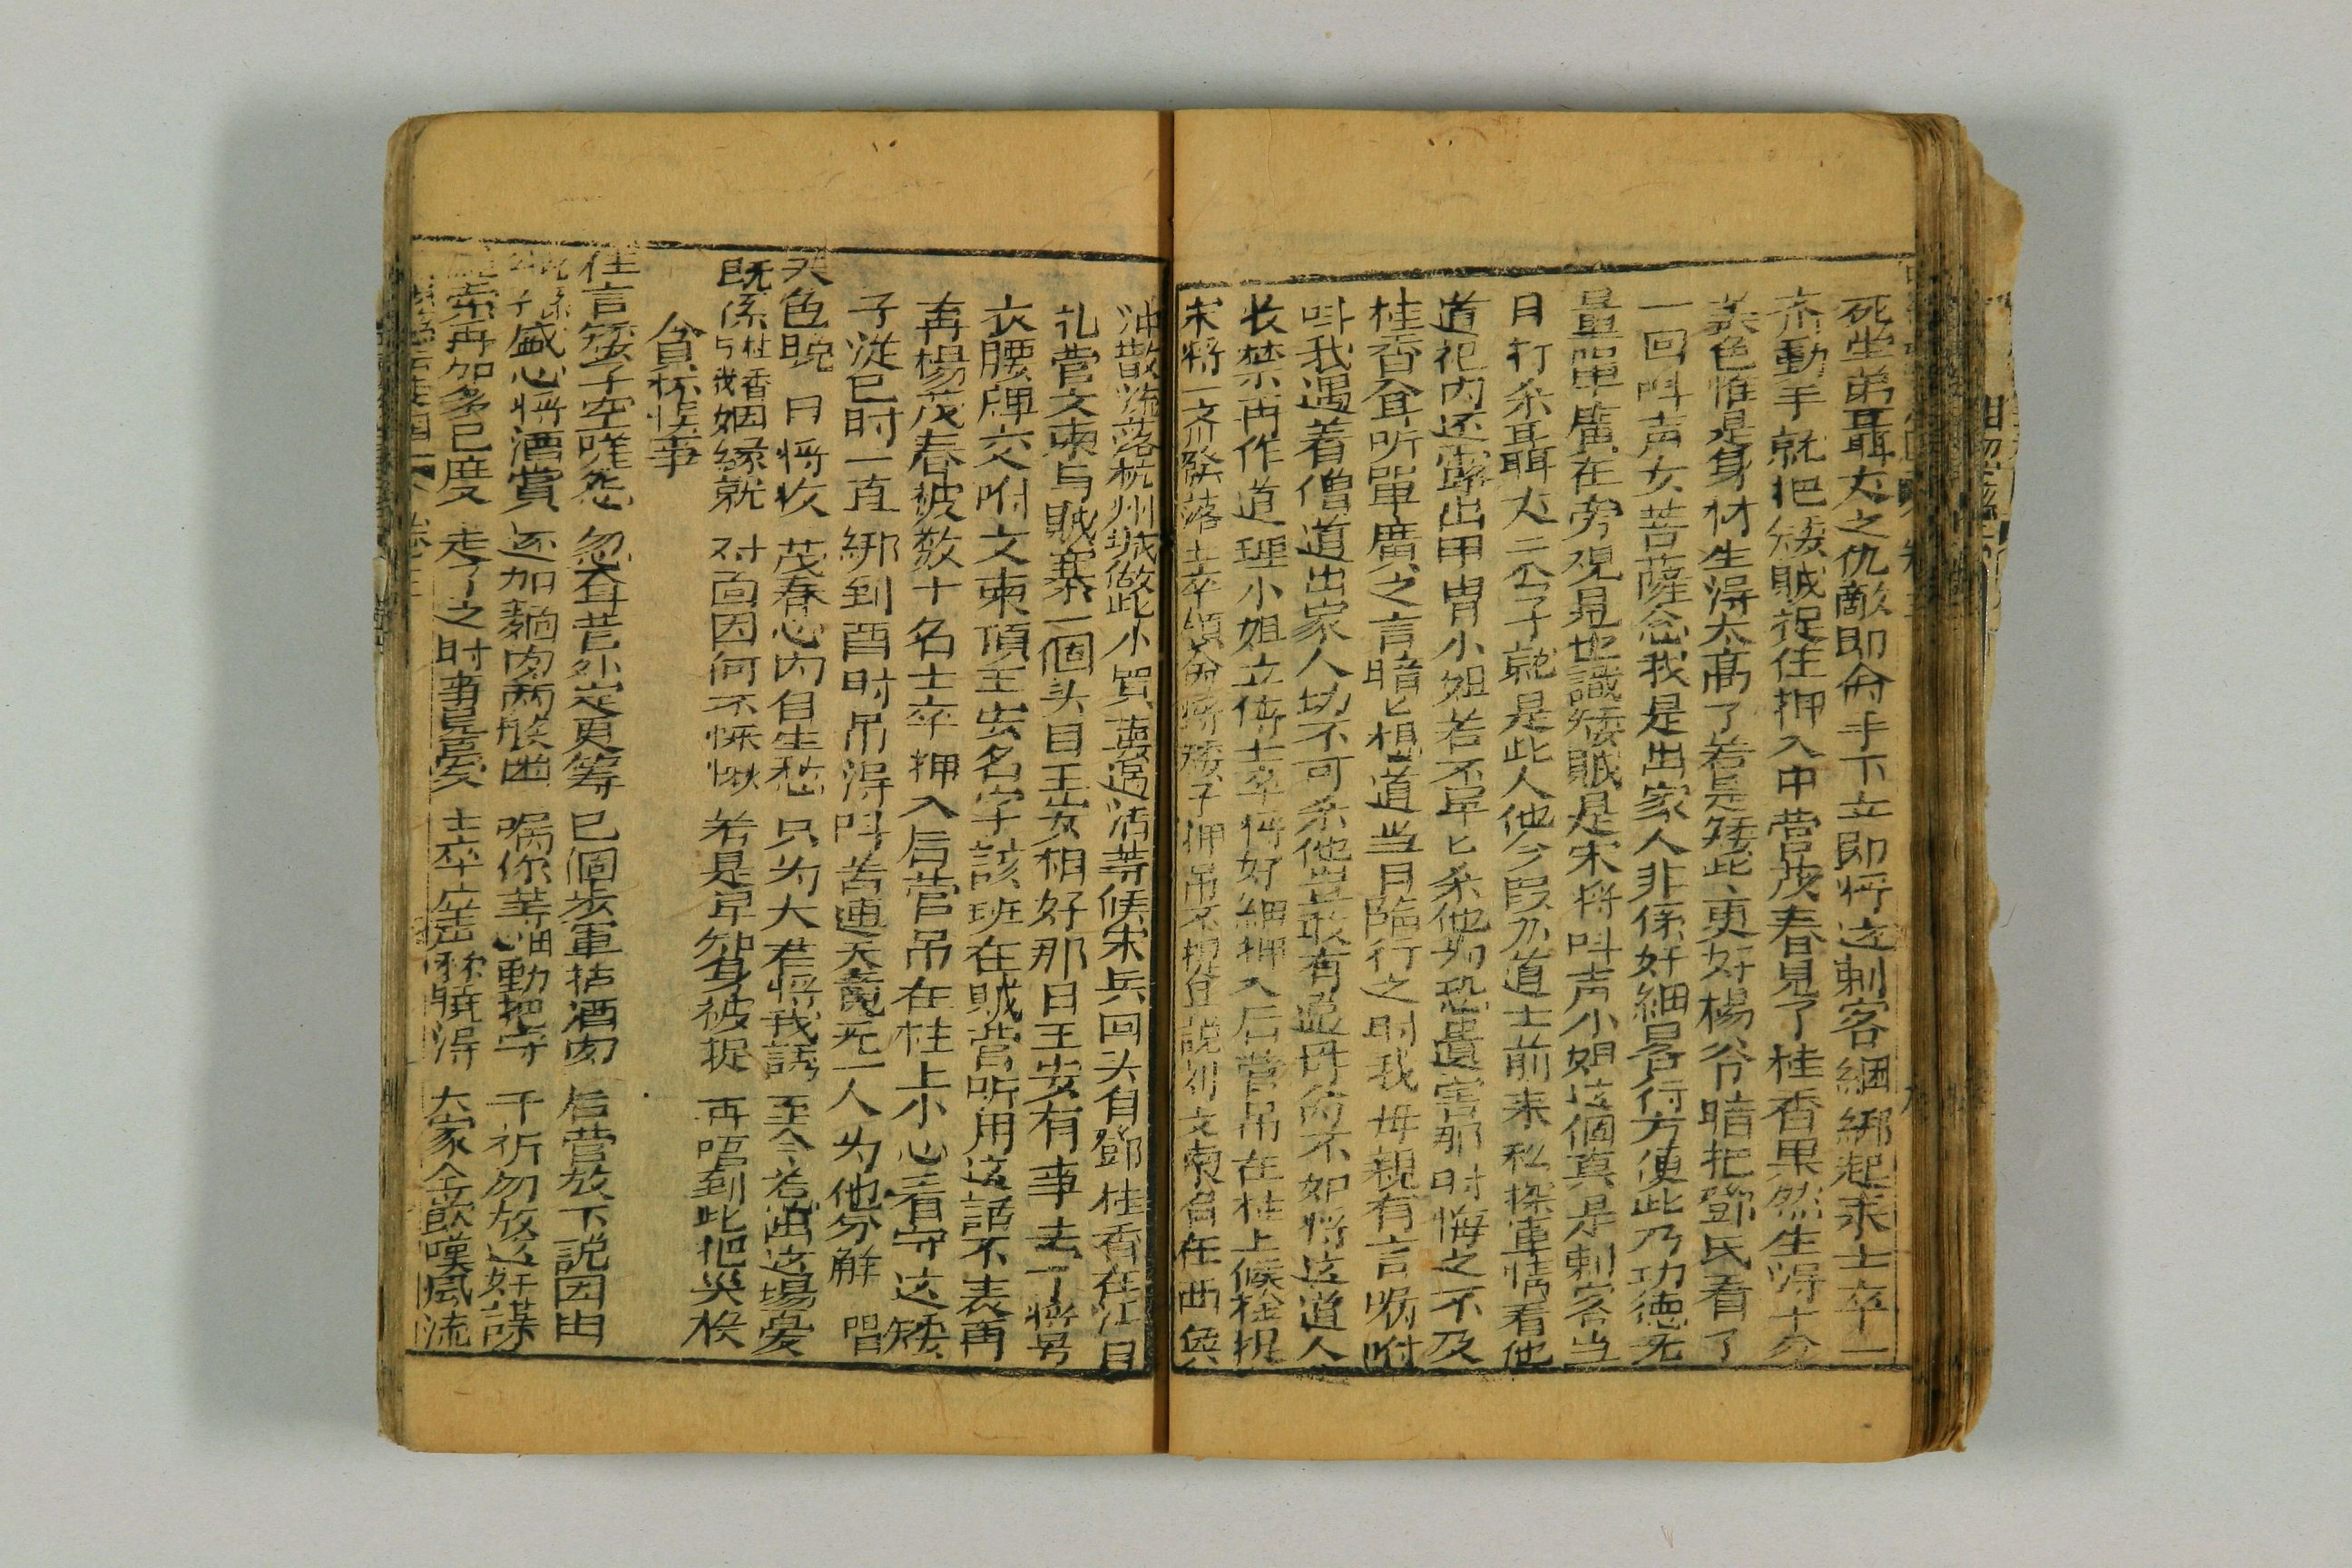 死坐弟聶大之仇敵即命手下立即将这剌客綑綁起来士卒一
齐動手就把矮賊捉住押入中营茂春見了桂香果然生得十分
美色惟是身材生得太高了若是矮此更好楊爷暗把鄧氏看了
一回呌声女菩薩念我是出家人非係奸細畧行方便此乃功德无
量單廣在旁覌見也識矮賊是宋将呌声小姐这個真是剌客当
日打杀聶大二公子就是此人他今叚乃道士前来私探軍情看他
道袍内还露出甲胄小姐若不早匕杀他为恐遺害那时悔之不及
桂香耸听單廣之言暗匕想道当日臨行之时我毋親有言嘱咐
呌我遇着僧道出家人切不可杀他豈敢有違毋命不如将这道人
收禁再作道理小姐立倚士卒将奸細押入后营吊在柱上候拴捉
宋将一文發落士卒領命将矮子押吊不提且説刘文柬自在西與
冲散流落杭州城做此小買賣過活等候宋兵回头有鄧桂香在江日
礼营文柬与賊寨一個头目王安相好那日王安有事去了将号
衣腰牌交咐文柬頂王安名字該班在賊营听用这話不表再
再楊茂春被数十名士卒押入后营吊在柱上小心看守这矮
子從巳时一直綁到酉时吊得呌苦連天竟无一人为他分解 唱
天色晚 日将收 茂春心内自生愁 只为大君将我誘 至今若出这場憂
既系桂香与我姻緣就 対面因何不怺愀 若是早知身被捉 再唔到此把吴候
貪杯悮事
住言矮子空嗟怨 忽耸昔外定更筹 巳個步軍拈酒肉 后营放下説因由
盛心将酒賞 还加麺肉兩般凿 嘱你等細心動把守 千祈勿放这奸謀
索再加多巳度 走了之时事見憂 士卒应言称暁得 大家仝飲嘆風流